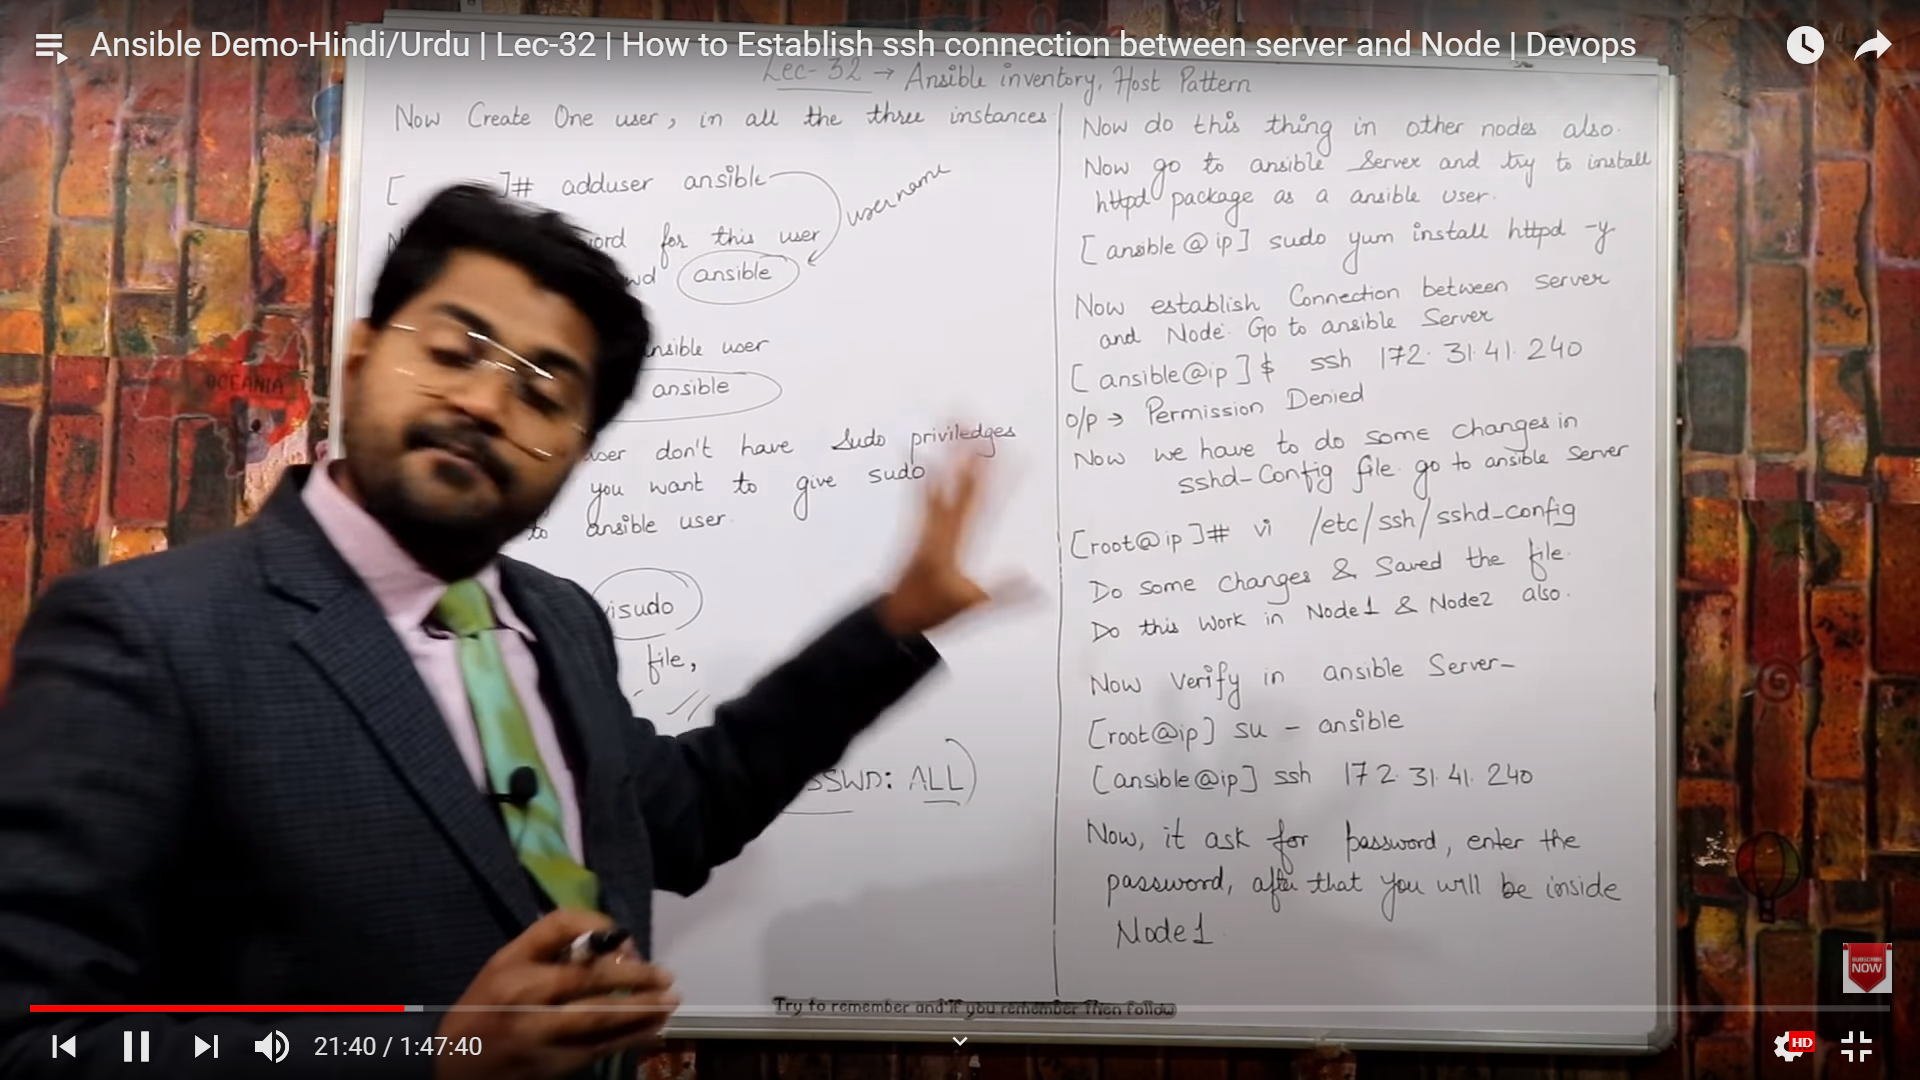 Ansible Demo-Hindi/Urdu | Lec-32 | How to Establish ssh connection between server and Node | Devops
Lec-32 → Ansible inventory, Host Pattern
Now Create One user, in all the three instances
[ ]# adduser ansible
username
for this user
ansible
ansible user
ansible
user don't have Sudo priviledges
you want to give sudo
to ansible user.
visudo
file,
ALL)
Now do this thing in other nodes also.
Now go to ansible Server and try to install
httpd package as a ansible user.
[ansible@ip] sudo yum install httpd -y
Now establish Connection between server
and Node. Go to ansible Server
[ansible@ip]$ ssh 172.31.41.240
o/p → Permission Denied
Now we have to do some changes in
sshd-Config file. go to ansible server
[root@ip]# vi /etc/ssh/sshd-config
Do some changes & Saved the file.
Do this work in Node1 & Node2 also.
Now Verify in ansible Server-
[root@ip] su - ansible
[ansible@ip] ssh 172.31.41.240
Now, it ask for password, enter the
password, after that you will be inside
Node1.
OCEANIA
SUBSCRIBE
NOW
Try to remember and if you remember Then follow
21:40 / 1:47:40
HD